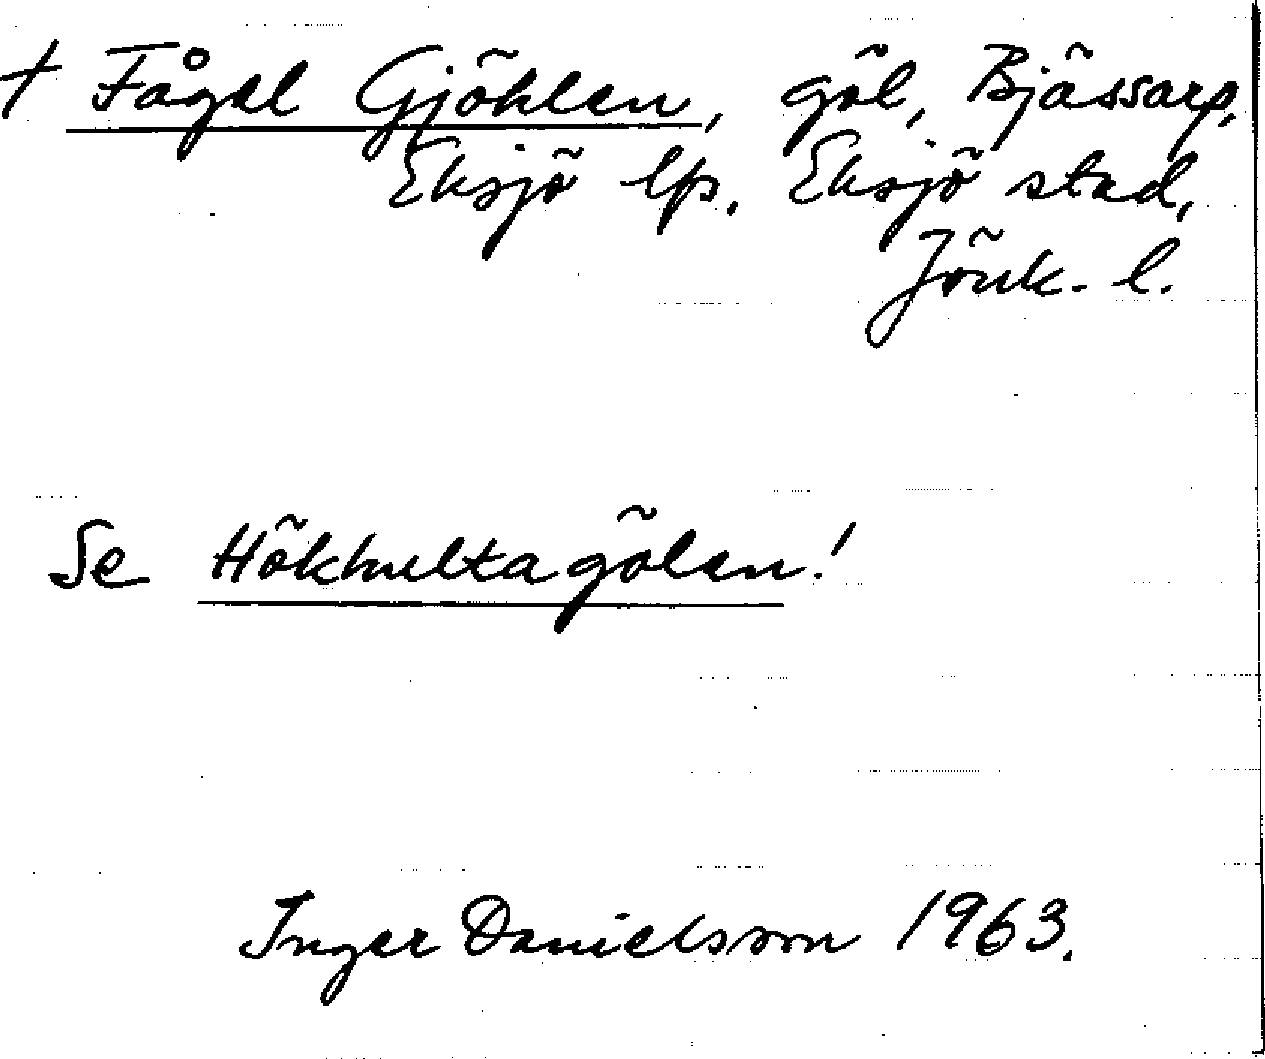 † Fågel Gjöhlen, göl, Bjässarp,
Eksjö lfs. Eksjö stad,
Jönk. l.
Se Hökhultagölen!
Inger Danielsson 1963.